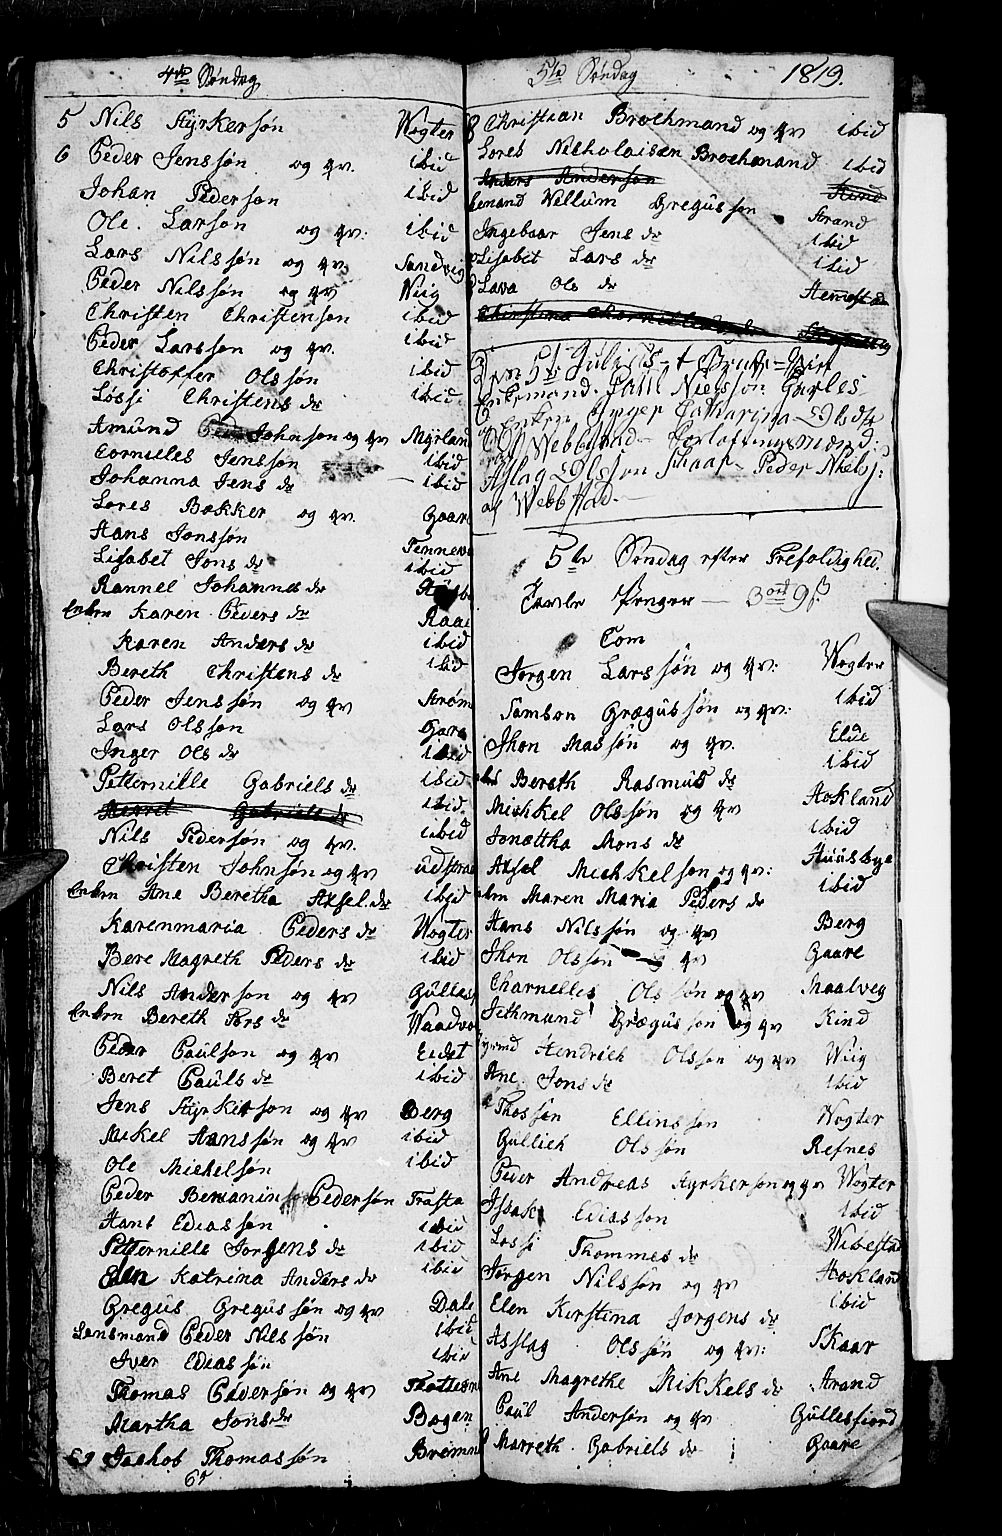 4de Søndag
5 Nils Styrkersøn Wogter
6 Peder Jenssøn og qv. ibid
Johan Pedersøn ibid
Ole Larsøn og qv: ibid
Lars Nilssøn og qv Sandvig
Peder Nilssøn og qv Wiig
Christen Christensøn ibid
Peder Larssøn og qv. ibid
Christoffer Olssøn ibid
Løssi Christens dr ibid
Amund Johnsøn og qv Myrland
Cornilles Jenssøn ibid
Johanna Jens dr ibid
Lores Bakker og qv. Gaar
Hans Jonssøn
Lisabet Jons dr ibid
Rannel Johannes dr
Enken Karen Peders dr
Karen Anders dr ibid
Bereth Christens dr ibid
Peder Jenssøn og qv Strøm
Lars Olssøn Gara
Inger Ols dr ibid
Petternille Gabriels dr ibid
Marret Gabriels dr ibid
Nils Pedersøn og qv. ibid
Christen Johnsøn og qv
Enken Ane Beretha Axsel dr ibid
Karenmaria Peders dr Wogter
Bere Magreth Peders dr ibid
Nils Andersøn og qv Gulles
Enken Bereth Pers dr
Peder Paulsøn og qv Eidet
Beret Pauls dr ibid
Jens Styrkersøn og qv Berg
Mikel Hanssøn og qv ibid
Ole Michelsøn ibid
Peder Bemanin Pedersøn Trasta
Hans Ediassøn ibid
Petternille Jorgens dr ibid
Elen Katrina Anders dr ibid
Gregus Gregussøn og qv Dale
Lensmand Peder Nilssøn ibid
Iver Ediassøn ibid
Thomas Pedersøn og qv
Martha Jons dr Bogen
69 Jaakob Thomassøn Bremn
69
5te Søndag 1819.
Christian Brochmand og qv ibid
Lores Nicholaisen Brochmand ibid
Anders Andersøn
Willum Gregussøn Strand
Ingebaar Jens dr ibid
Lisabet Lars dr ibid
Lava Ols dr Hemestad
Den 5te Julius
Enkemand. Paul Nielssøn
Enken Catharina Olsdtr
Forlofningsmænd:
Aslag Olssøn Skaar Peder Nielss:
af Webbstad
5te Søndag efter Trefoldighed.
Tavle Penger 3 ort 9 s
Com
Jørgen Larssøn og qv: Wogter
Samson Grægussøn og qv: ibid
Jhon Massøn og qv. Elde
Bereth Rasmus dr ibid
Mishkel Olssøn og qv Hokland
Jonættha Mons dr ibid
Axsel Michkelsøn og qv: Huusbye
Maren Maria Peders dr ibid
Hans Nilssøn og qv Berg
Jhon Olssøn og qv Gaare
Charnelles Olssøn og qv Maalveg
Jethmund Grægussøn og qv Kind
Hendrich Olssøn og qv Wiig
Ane Jons dr ibid
Thossen Ellinssøn Wogter
Gullich Olssøn Refnes
Peder Andreas Styrkersøn og qv Wogter
Issak Ediassøn ibid
Lossi Thommes dr Wibestad
Jørgen Nilssøn og qv Hokland
Elen Kirstina Jorgens dr ibid
Asslag Olssøn og qv: Skaar
Ane Magrethe Mikkels dr Strand
Paul Andersøn og qv Gullesfiord
Marreth Gabriels dr Gaare